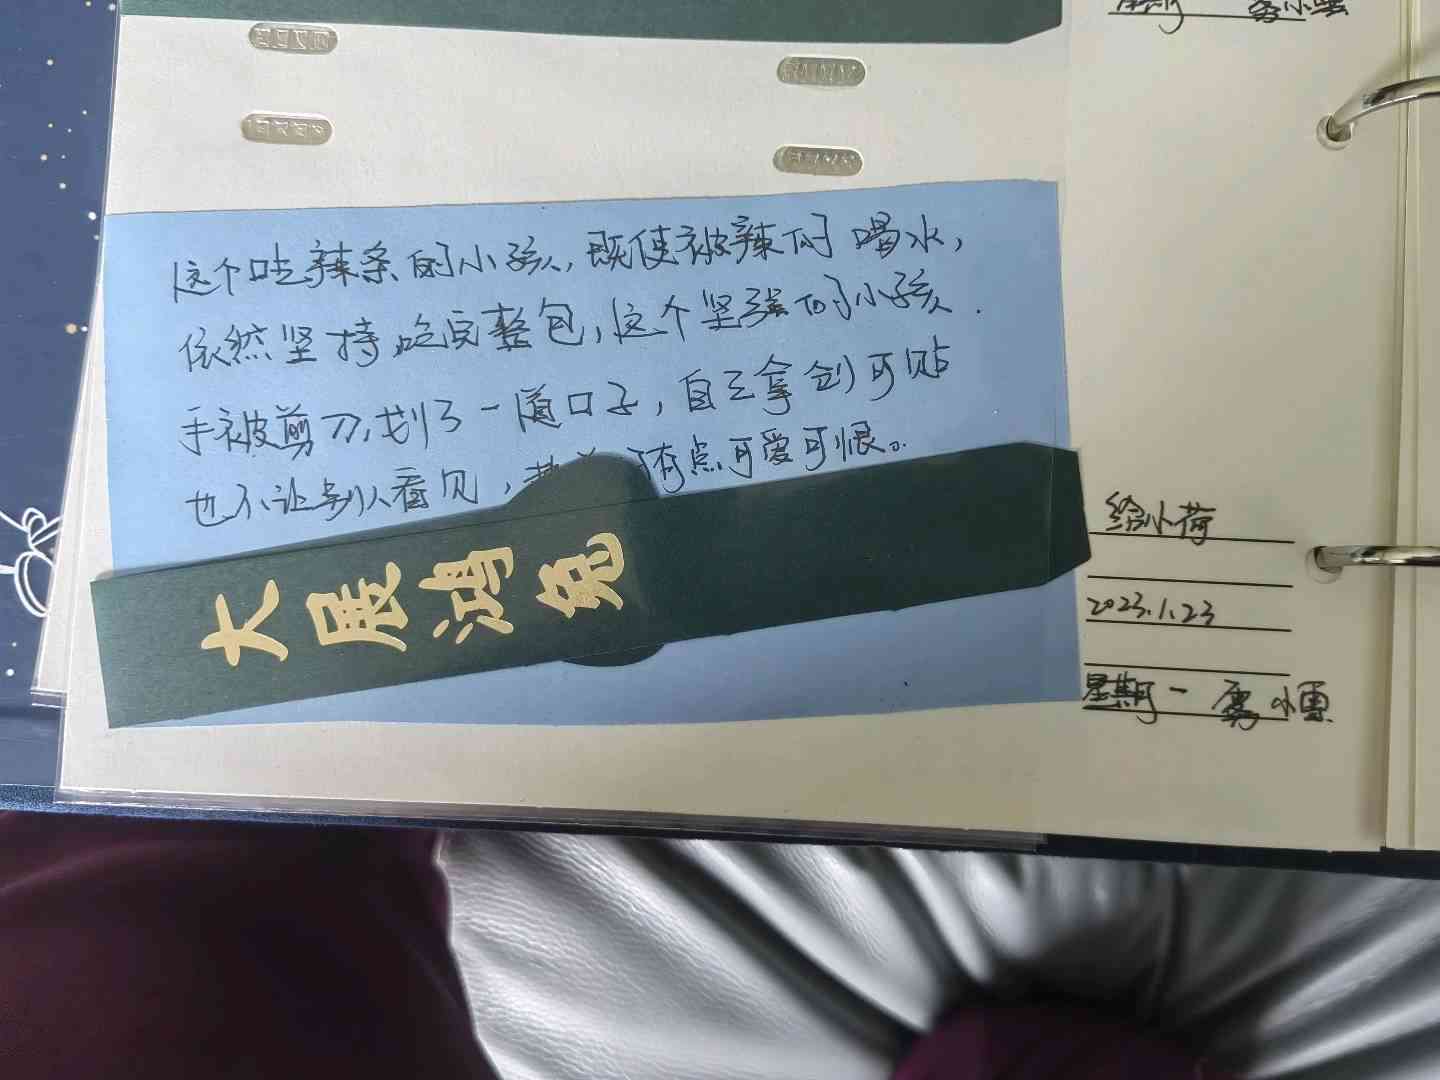 这个吃辣条的小孩，既使被辣的喝水，
依然坚持吃完整包，这个坚强的小孩．
手被剪刀划了一道口子，自己拿创可贴
也不让别人看见，有点可爱可恨。
大展鸿兔
给小荷
2023.1.23
星期一 小雪